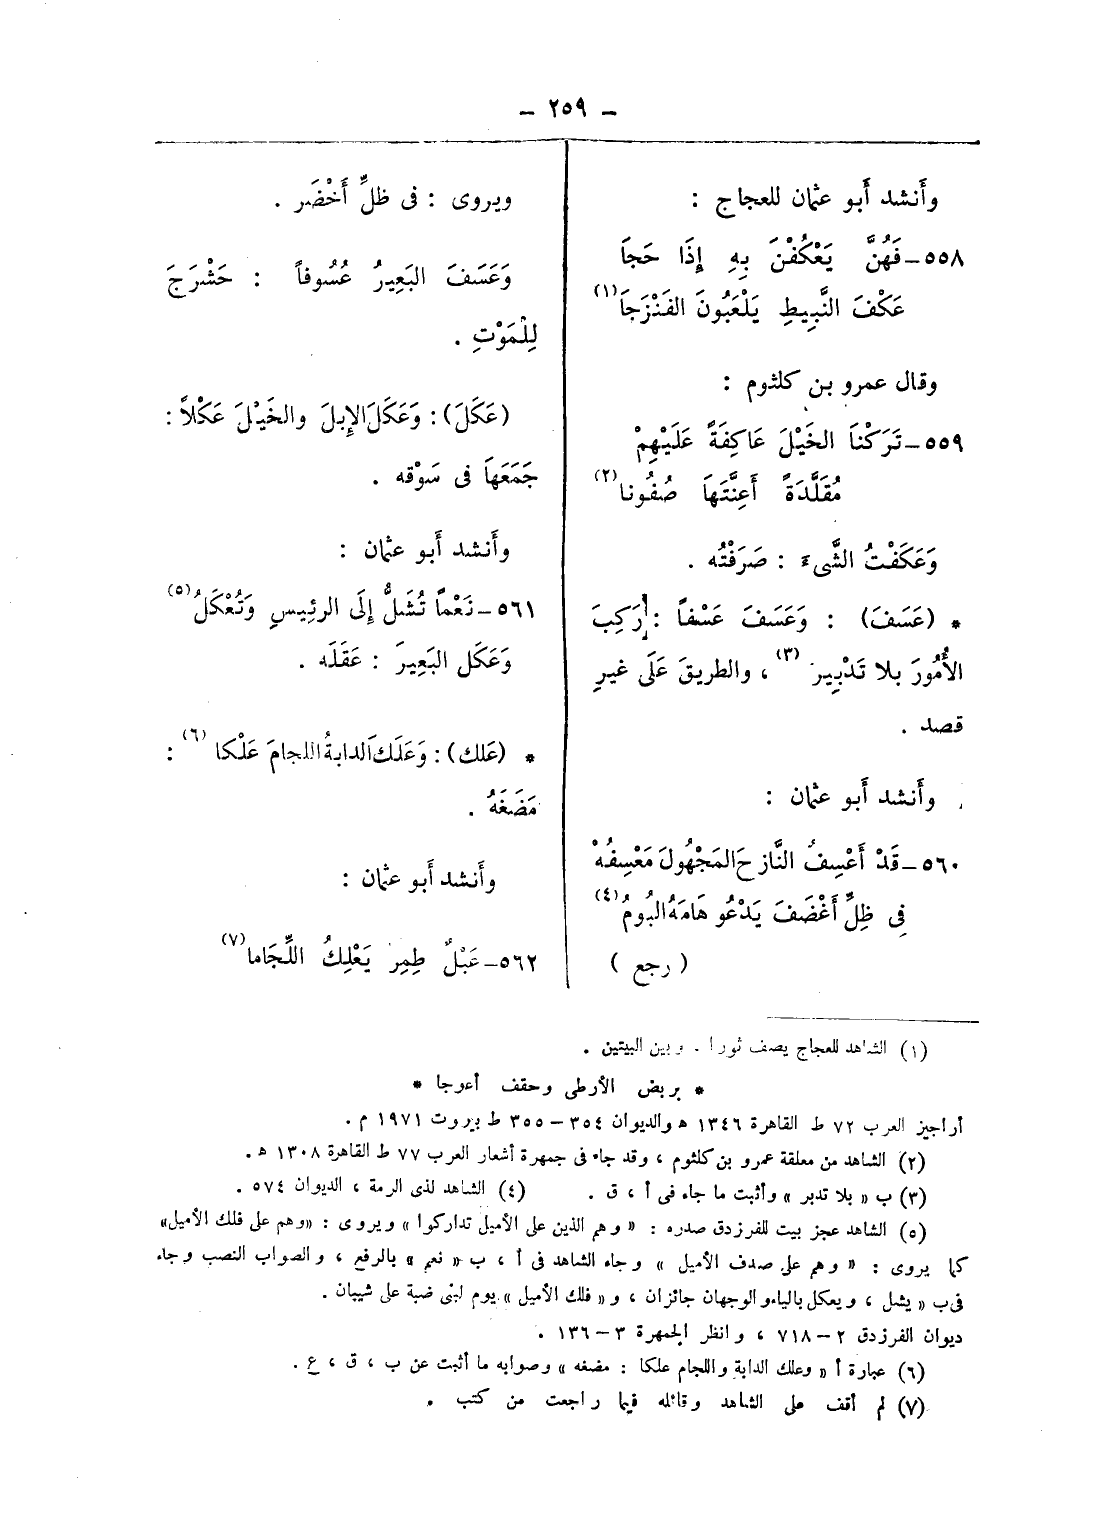 – ٢٥٩ –
وأَنشد أَبو عثمان للعجاج :
٥٥٨ – فَهُنَّ يَعْكُفْنَ بِهِ إِذَا حَجَا
عَكْفَ النَّبِيطِ يَلْعَبُونَ الفَنْزَجَا (١)
وقال عمرو بن كلثوم :
٥٥٩ – تَرَكْنَا الخَيْلَ عَاكِفَةً عَلَيْهِمْ
مُقَلَّدَةً أَعِنَّتَهَا صُفُونا (٢)
وَعَكَفْتُ الشَّىءَ : صَرَفْتُه .
* (عَسَفَ) : وَعَسَفَ عَسْفاً : رَكِبَ
الأُمُورَ بلا تَدْبِير (٣) ، والطريقَ عَلَى غيرِ
قصد .
وأَنشد أَبو عثمان :
٥٦٠ – قَدْ أَعْسِفُ النَّازِحَ المَجْهُولَ مَعْسِفُهُ
فِى ظِلِّ أَغْضَفَ يَدْعُو هَامَهُ البُومُ (٤)
( رجع )
ويروى : فى ظلِّ أَخْضَر .
وَعَسَفَ البَعِيرُ عُسُوفاً : حَشْرَجَ
لِلْمَوْتِ .
(عَكَلَ) : وَعَكَلَ الإِبلَ والخَيْلَ عَكْلاً :
جَمَعَهَا فى سَوْقه .
وأَنشد أَبو عثمان :
٥٦١ – نَعْمًا تُشَلُّ إِلَى الرئِيسِ وَتُعْكَلُ (٥)
وَعَكَل البَعِيرَ : عَقَلَه .
* (عَلك) : وَعَلَكَ الدابةُ اللجامَ عَلْكا (٦) :
مَضَغَهُ .
وأَنشد أَبو عثمان :
٥٦٢ – عَبْلٌ طِمِر يَعْلِكُ اللِّجَاما (٧)
(١) الشاهد للعجاج يصف ثورا . وبين البيتين .
* بربض الأرطى وحقف أعوجا *
أراجيز العرب ٧٢ ط القاهرة ١٣٤٦ ه والديوان ٣٥٤ – ٣٥٥ ط بيروت ١٩٧١ م .
(٢) الشاهد من معلقة عمرو بن كلثوم ، وقد جاء فى جمهرة أشعار العرب ٧٧ ط القاهرة ١٣٠٨ ه .
(٣) ب « بلا تدبر » وأثبت ما جاء فى أ ، ق . (٤) الشاهد لذى الرمة ، الديوان ٥٧٤ .
(٥) الشاهد عجز بيت للفرزدق صدره : « وهم الذين على الأميل تداركوا » ويروى : «وهم على فلك الأميل»
كما يروى : « وهم على صدف الأميل » وجاء الشاهد فى أ ، ب « نعم » بالرفع ، والصواب النصب وجاء
فى ب « يشل ، ويعكل بالياء والوجهان جائزان ، و« فلك الأميل » يوم لبنى ضبة على شيبان .
ديوان الفرزدق ٢ – ٧١٨ ، وانظر الجمهرة ٣ – ١٣٦ .
(٦) عبارة أ « وعلك الدابة واللجام علكا : مضغه » وصوابه ما أثبت عن ب ، ق ، ع .
(٧) لم أقف على الشاهد وقائله فيما راجعت من كتب .